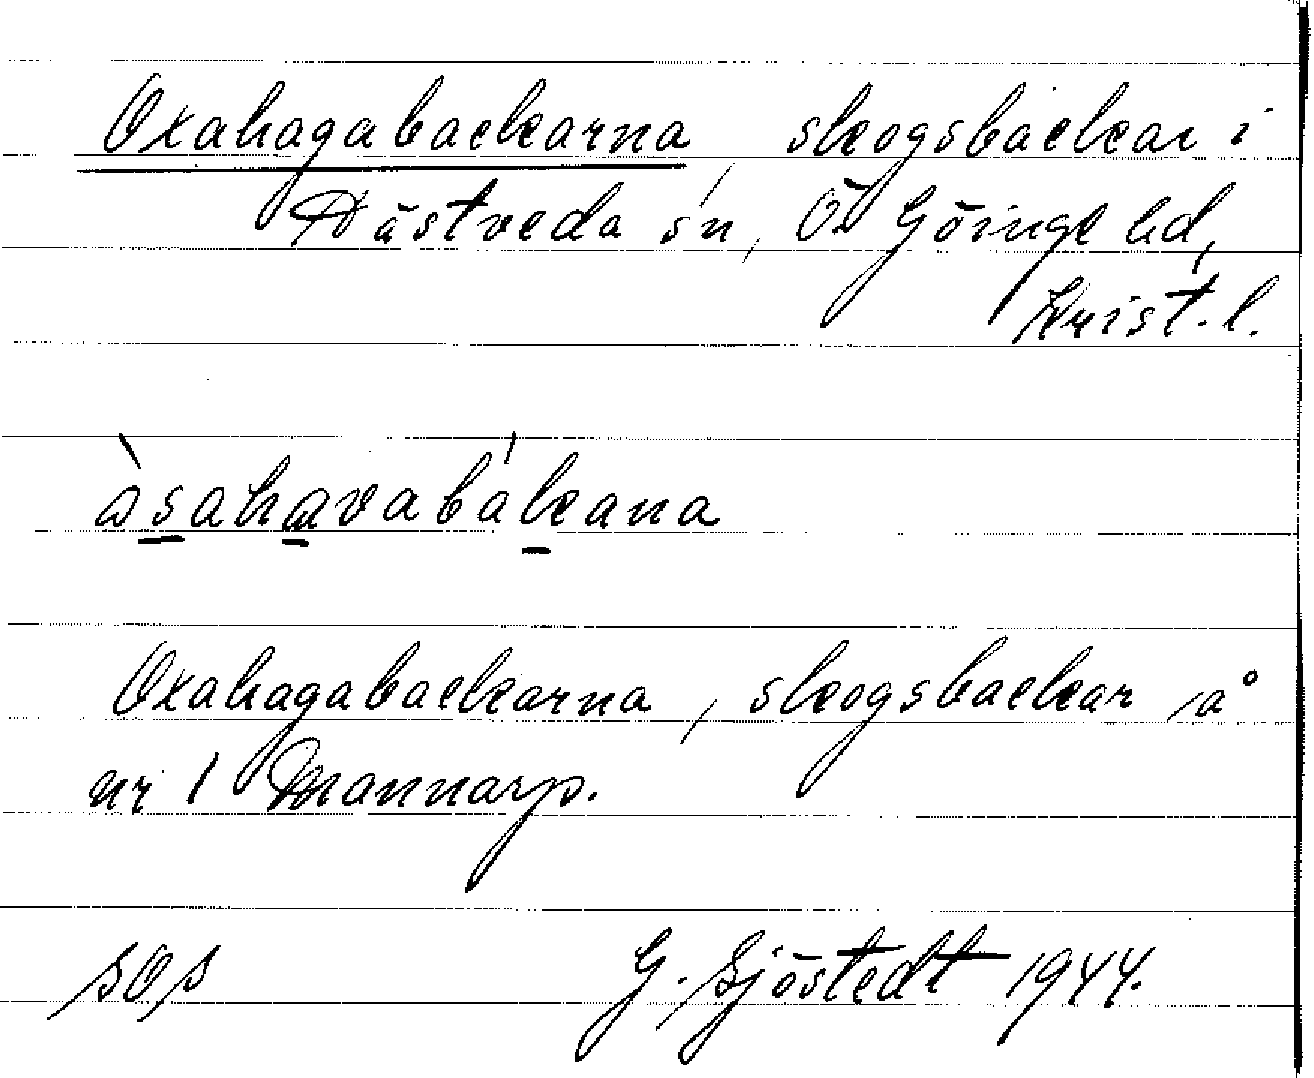 Oxahagabackarna, skogsbackar i
Västveda sn, Ö Göinge hd,
Krist. l.
àsahavabákana
Oxahagabackarna, skogsbackar å
nr 1 Mannarp.
sos G. Sjöstedt 1944.